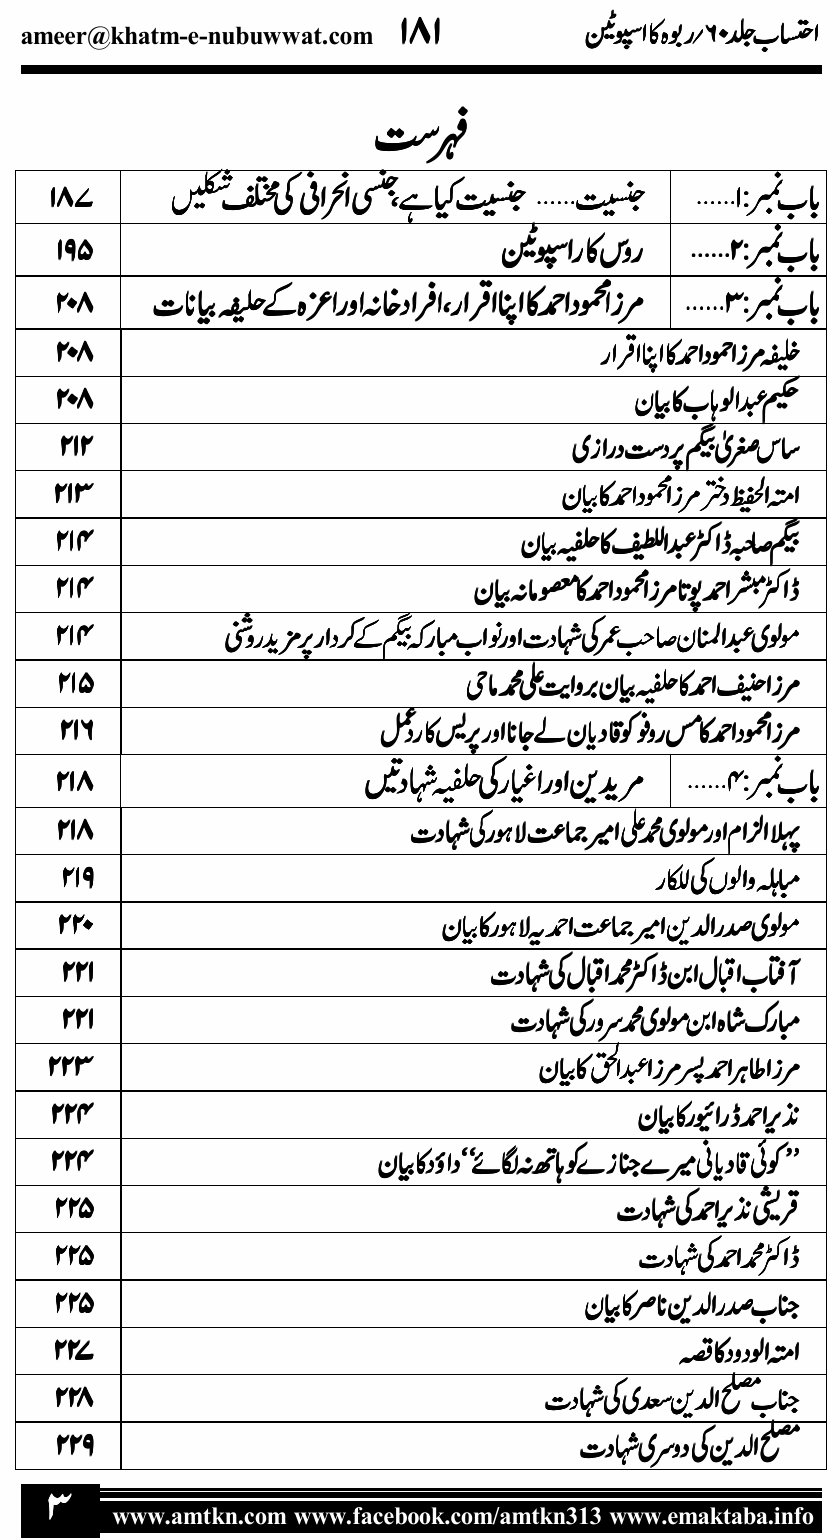 احتساب جلد ۶۰؍ ربوہ کا اسپوٹین ۱۸۱ ameer@khatm-e-nubuwwat.com
فہرست
باب نمبر:۱...... جنسیت...... جنسیت کیا ہے، جنسی انحرافی کی مختلف شکلیں ۱۸۷
باب نمبر:۲...... روس کا راسپوٹین ۱۹۵
باب نمبر:۳...... مرزا محمود احمد کا اپنا اقرار، افراد خانہ اور اعزہ کے حلیفہ بیانات ۲۰۸
خلیفہ مرزا حمود احمد کا اپنا اقرار ۲۰۸
حکیم عبدالوہاب کا بیان ۲۰۸
ساس صغریٰ بیگم پر دست درازی ۲۱۲
امتہ الحفیظ دختر مرزا محمود احمد کا بیان ۲۱۳
بیگم صاحبہ ڈاکٹر عبداللطیف کا حلفیہ بیان ۲۱۴
ڈاکٹر مبشر احمد پوتا مرزا محمود احمد کا معصومانہ بیان ۲۱۴
مولوی عبدالمنان صاحب عمر کی شہادت اور نواب مبارکہ بیگم کے کردار پر مزید روشنی ۲۱۴
مرزا حنیف احمد کا حلفیہ بیان بروایت علی محمد ماحی ۲۱۵
مرزا محمود احمد کا مس روفو کو قادیان لے جانا اور پریس کا ردعمل ۲۱۶
باب نمبر:۴...... مریدین اور اغیار کی حلفیہ شہادتیں ۲۱۸
پہلا الزام اور مولوی محمد علی امیر جماعت لاہور کی شہادت ۲۱۸
مباہلہ والوں کی للکار ۲۱۹
مولوی صدرالدین امیر جماعت احمدیہ لاہور کا بیان ۲۲۰
آفتاب اقبال ابن ڈاکٹر محمد اقبال کی شہادت ۲۲۱
مبارک شاہ ابن مولوی محمد سرور کی شہادت ۲۲۱
مرزا طاہر احمد پسر مرزا عبدالحق کا بیان ۲۲۳
نذیر احمد ڈرائیور کا بیان ۲۲۴
”کوئی قادیانی میرے جنازے کو ہاتھ نہ لگائے“ داؤد کا بیان ۲۲۴
قریشی نذیر احمد کی شہادت ۲۲۵
ڈاکٹر محمد احمد کی شہادت ۲۲۵
جناب صدرالدین ناصر کا بیان ۲۲۵
امتہ الودود کا قصہ ۲۲۷
جناب مصلح الدین سعدی کی شہادت ۲۲۸
مصلح الدین کی دوسری شہادت ۲۲۹
۳ www.amtkn.com www.facebook.com/amtkn313 www.emaktaba.info